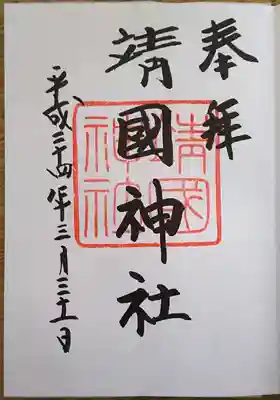 奉拜
靖國神社
平成二十四年三月三十一日
靖國
神社